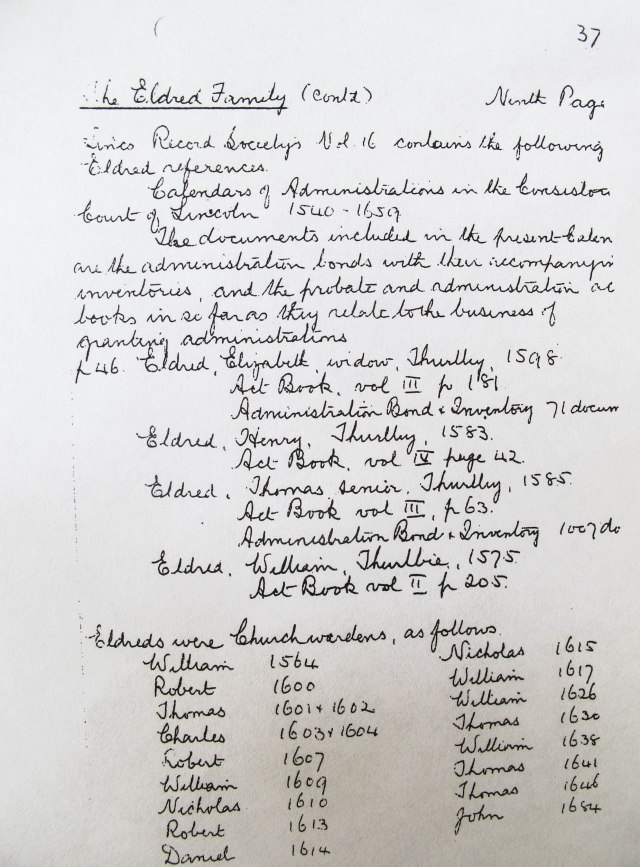 37
The Eldred Family (Contd) Ninth Page
Lincs Record Society's Vol. 16 contains the following
Eldred references.
Calendars of Administrations in the Consistor
Court of Lincoln 1540-1659
The documents included in the present Calen
are the administration bonds with their accompanyin
inventories, and the probate and administration ac
books in so far as they relate to the business of
granting administrations
p 46. Eldred, Elizabeth, widow, Thurlby, 1598
Act Book, vol III p 181
Administration Bond & Inventory 71 docum
Eldred, Henry, Thurlby, 1583.
Act Book, vol IV page 42.
Eldred, Thomas senior, Thurlby, 1585.
Act Book vol III, p 63.
Administration Bond & Inventory 1007 do
Eldred, William, Thurlbie, 1575
Act Book vol II p 205.
Eldreds were Churchwardens, as follows.
William 1564
Robert 1600
Thomas 1601 & 1602
Charles 1603 & 1604
Robert 1607
William 1609
Nicholas 1610
Robert 1613
Daniel 1614
Nicholas 1615
William 1617
William 1626
Thomas 1630
William 1638
Thomas 1641
Thomas 1646
John 1684